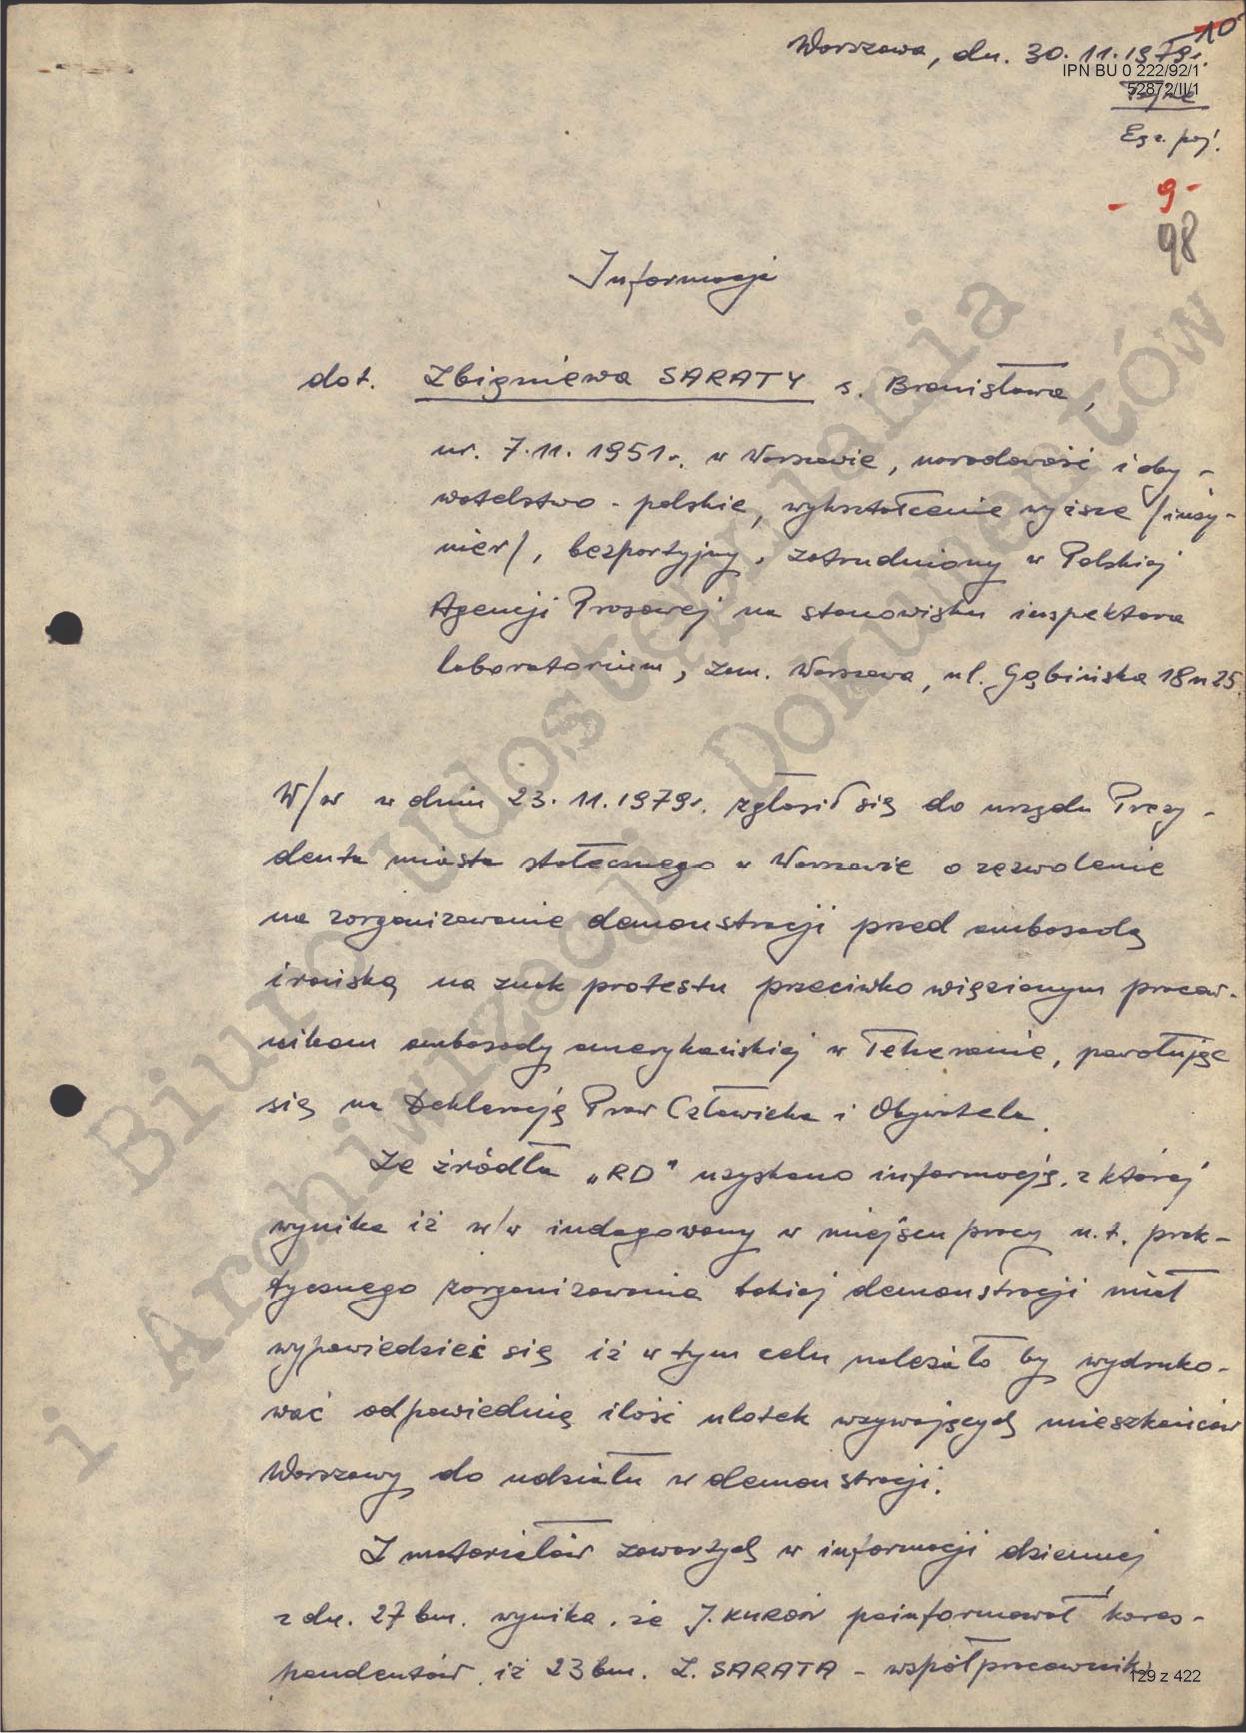 10
Warszawa, dn. 30.11.1979r.
IPN BU 0 222/92/1
52872/II/1
Tajne
Egz. poj.
- 9 -
98
Informacja
dot. Zbigniewa SARATY s. Bronisława,
ur. 7.11.1951r. w Warszawie, narodowość i oby-
watelstwo - polskie, wykształcenie wyższe /inży-
nier/, bezpartyjny, zatrudniony w Polskiej
Agencji Prasowej na stanowisku inspektora
laboratorium, zam. Warszawa, ul. Gąbińska 18 m 25.
W/w w dniu 23.11.1979r. zgłosił się do urzędu Prezy-
denta miasta stołecznego w Warszawie o zezwolenie
na zorganizowanie demonstracji przed ambasadą
irańską na znak protestu przeciwko więzionym pracow-
nikom ambasady amerykańskiej w Teheranie, powołując
się na Deklarację Praw Człowieka i Obywatela.
Ze źródła „RD" uzyskano informację, z której
wynika iż w/w indagowany w miejscu pracy n.t. prak-
tycznego zorganizowania takiej demonstracji miał
wypowiedzieć się iż w tym celu należało by wydruko-
wać odpowiednią ilość ulotek wzywających mieszkańców
Warszawy do udziału w demonstracji.
Z materiałów zawartych w informacji dziennej
z dn. 27 bm. wynika, że J. KUROŃ poinformował kores-
pondentów, iż 23 bm. Z. SARATA - współpracownik
129 z 422
Biuro Udostępniania
i Archiwizacji Dokumentów